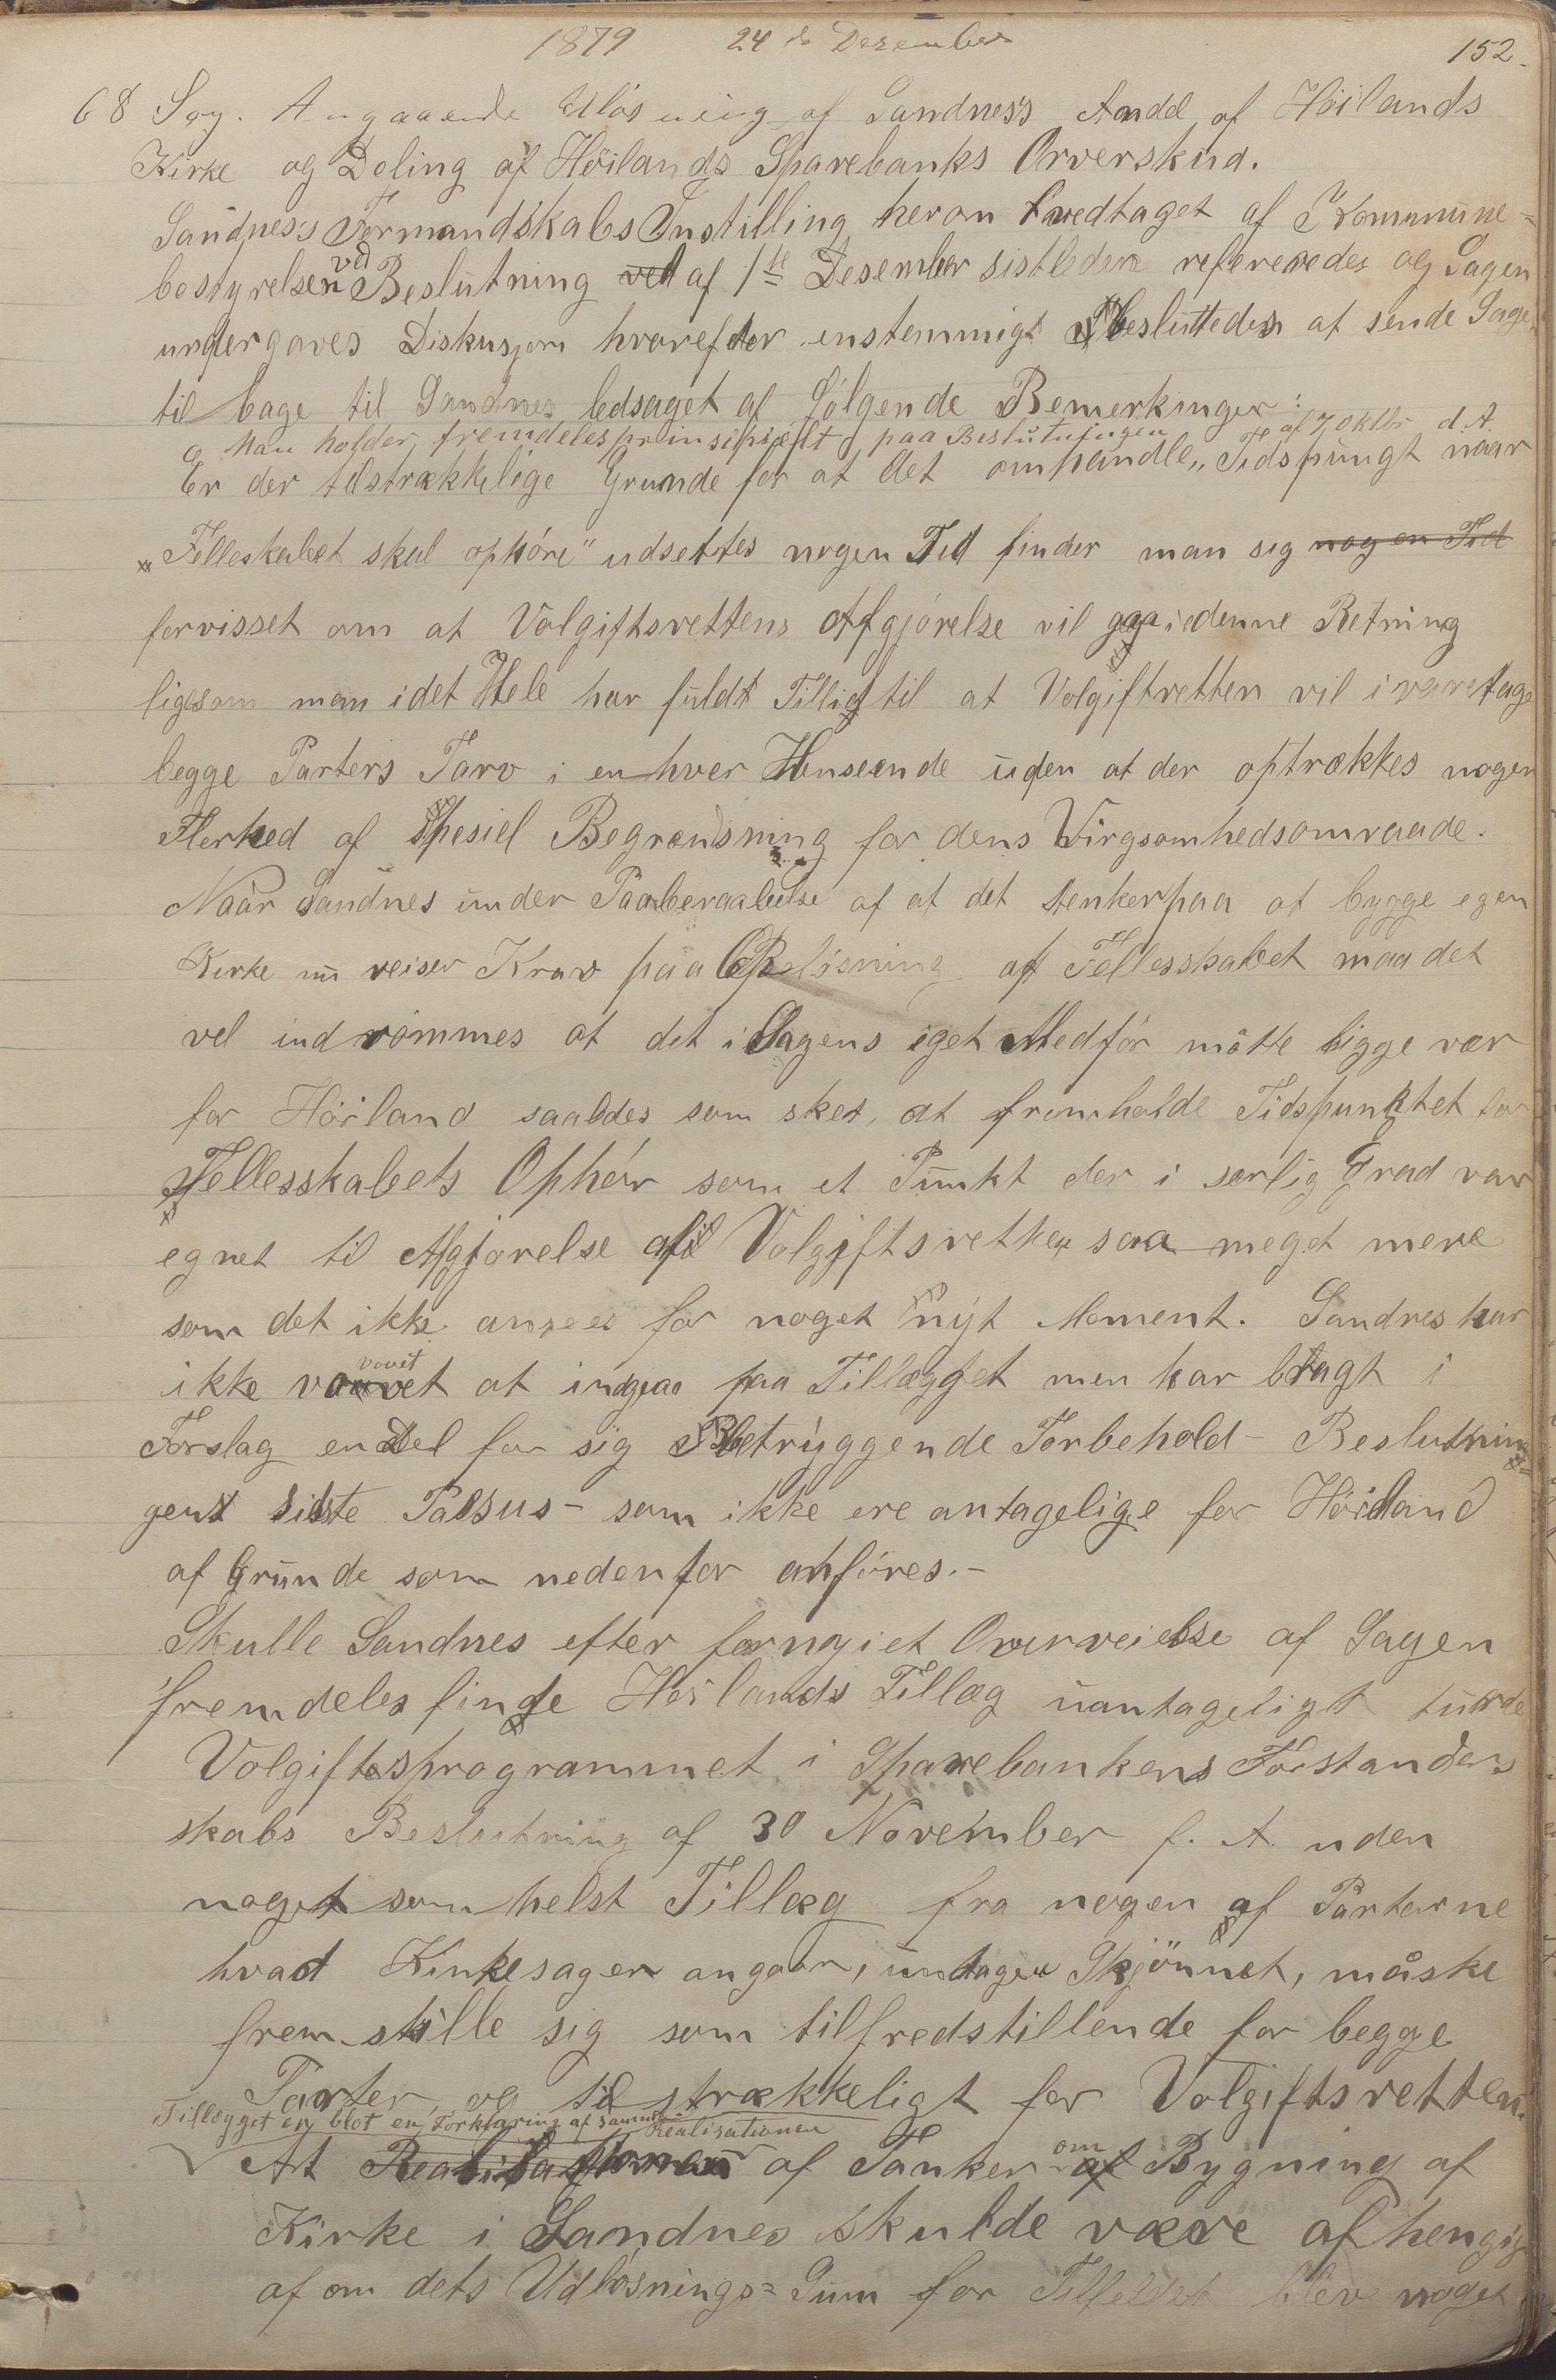 1879 24de Desember 152.
68 Sag. Angaaende Udlösning af Sandnes's Andel af Höilands
Kirke og Deling af Höilands Sparebanks Overskud.
Sandnes's Formandskabs Instilling herom vedtaget af Kommune=
bestyrelsen ved Beslutning af 1ste Desember sistleden refereredes og Sagen
undergaves Diskusjon hvorefter enstemmigt besluttedes at sende Sagen
tilbage til Sandnes ledsaget af fölgende Bemerkinger:
Man holder fremdeles prinsipielt paa Beslutningen af 7 oktbr d.A.
Er der tilstrækkelige Grunde for at det omhandle,, Tidspungt naar
"Felleskabet skal ophöre" udsettes nogen Tid finder man sig nogen Tid
forvisset om at Volgiftsrettens Afgjörelse vil gaa i denne Retning
ligesom man i det Hele har fuldt Tillid til at Volgiftretten vil ivaretage
begge Parters Tarv i enhver Henseende uden at der optrækkes nogen
Slerhed af spesiel Begrænsning for dens Virgsomhedsomraade.
Naar Sandnes under Paaberaabelse af at det tenker paa at bygge egen
Kirke nu reiser Krav paa Oplösning af Fellesskabet maa det
vel indrömmes at det i Sagens eget Medför måtte ligge nær
for Höiland saaledes som sket, at fremholde Tidspunktet for
Fellesskabets Ophör som et Punkt der i serlig Grad var
egnet til Afgjörelse af Volgiftsretten saa meget mere
som det ikke ansees for noget nyt Moment. Sandnes har
ikke vovet at indgaa paa Tillægget men har bragt i
Forslag en Del for sig betryggende Forbehold - Beslutnin=
gens sidste Passus - som ikke ere antagelige for Höiland
af Grunde som nedenfor anföres.-
Skulle Sandnes efter fornyiet Overveielse af Sagen
fremdeles finde Höilands Tillæg uantageligt turde
Volgiftsprogrammet i Sparebankens Forstander
skabs Beslutning af 30 November f. A. uden
noget somhelst Tillæg fra nogen af Parterne
hvad Kirkesagen angaar, undtagen Skjönnet, måske
fremstille sig som tilfredstillende for begge
Parter, og tilstrækkeligt for Volgiftsretten.
Tillægget er blot en Forklaring af samme. Realisationen
At af Tanken om Bygning af
Kirke i Sandnes skulde være afhengig
af om dets Udlösnings=Sum for Tilfeldet blev noget